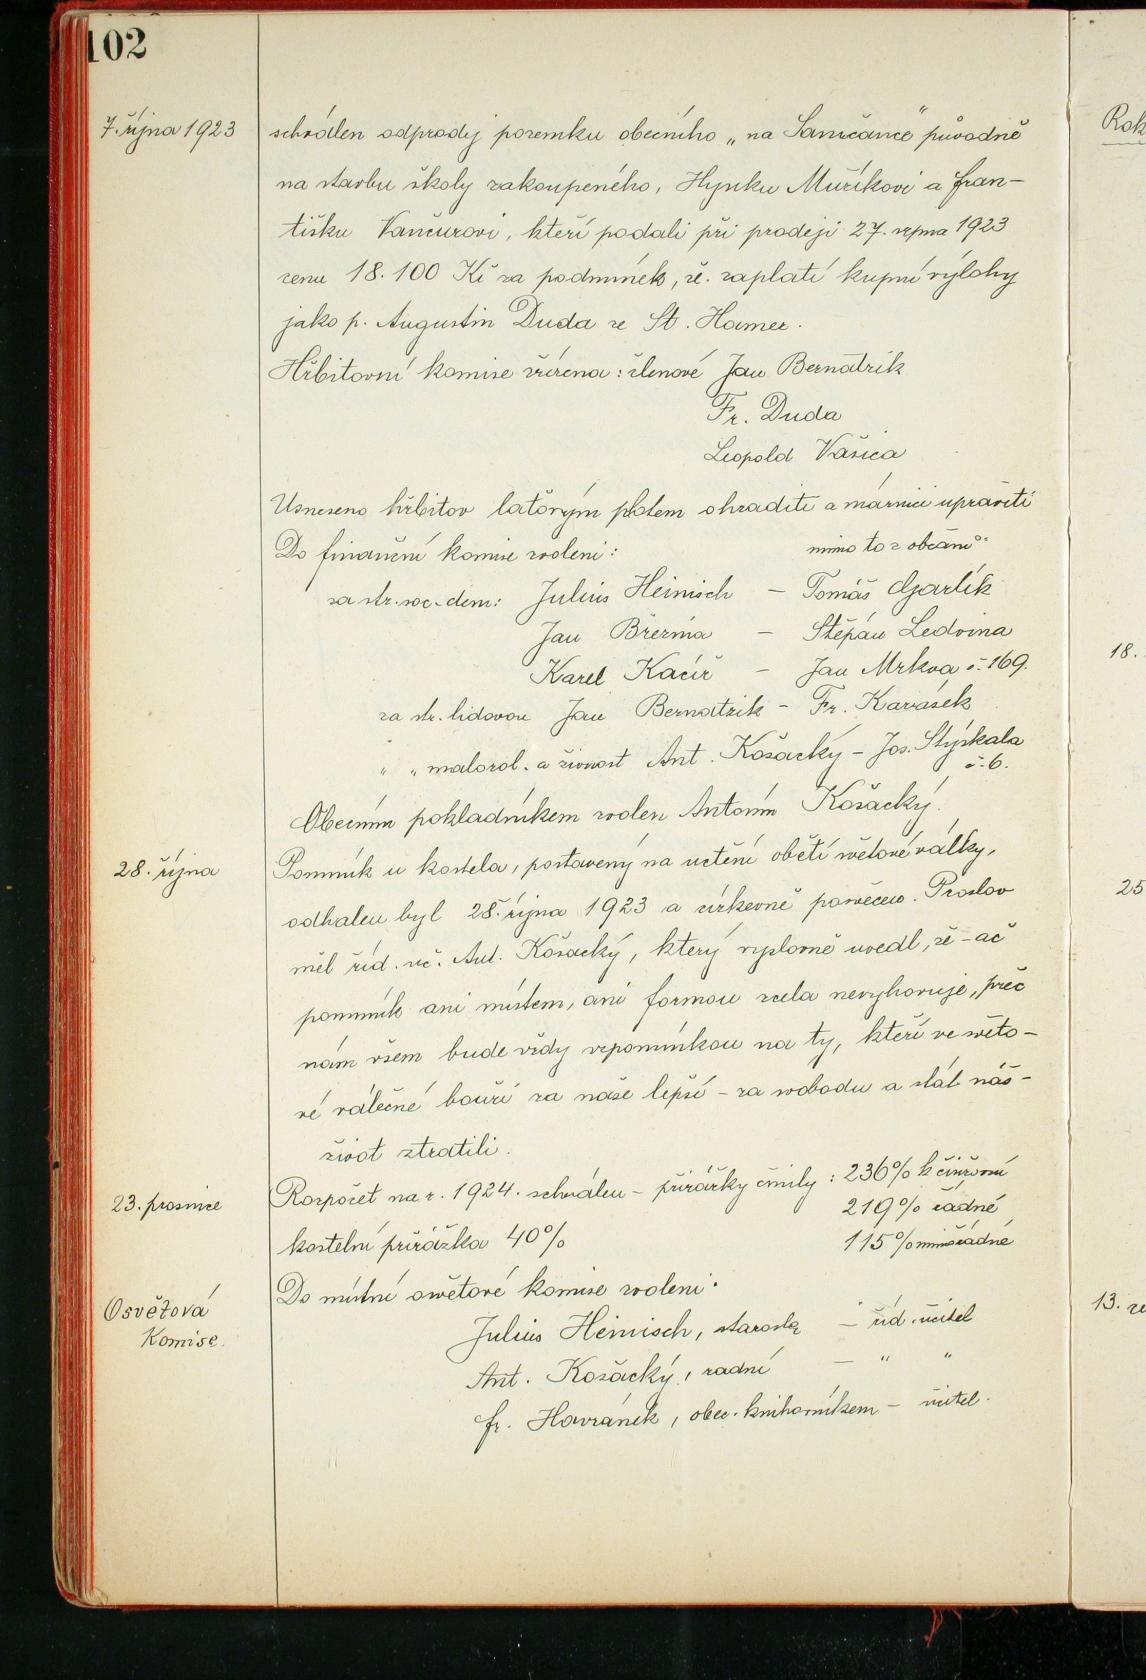 102
7. října 1923
schválen odprodej pozemku obecního „na Samčance" původně
na stavbu školy zakoupeného, Hynku Muříkovi a Fran-
tišku Vančurovi, kteří podali při prodeji 27. srpna 1923
cenu 18.100 Kč za podmínek, že zaplatí kupní výlohy
jako p. Augustin Duda ze St. Hamer.
Hřbitovní komise zřízena: členové Jan Bernatzik
Fr. Duda
Leopold Vašica
Usneseno hřbitov laťovým plotem ohraditi a márnici upraviti
Do finanční komise zvoleni: mimo to z občanů:
za str. soc.-dem: Julius Heinisch – Tomáš Gjarlík
Jan Březina – Štěpán Ledvina
Karel Kacíř – Jan Mrkva č. 169.
za str. lidovou Jan Bernatzik – Fr. Karásek
" " malorol. a živnost Ant. Košacký – Jos. Stýskala
č. 6.
Obecním pokladníkem zvolen Antonín Košacký.
28. října
Pomník u kostela, postavený na uctění obětí světové války,
odhalen byl 28. října 1923 a církevně posvěcen. Proslov
měl říd. uč. Ant. Košacký, který výslovně uvedl, že – ač
pomník ani místem, ani formou zcela nevyhovuje, přec
nám všem bude vždy vzpomínkou na ty, kteří ve světo-
vé válečné bouři za naše lepší – za svobodu a stát náš –
život ztratili.
23. prosince
Rozpočet na r. 1924. schválen – přirážky činily: 236% k činžovní
219% řádné
kostelní přirážka 40% 115% mimořádné
Osvětová
Komise.
Do místní osvětové komise zvoleni:
Julius Heinisch, starosta – říd. učitel
Ant. Košacký, radní – " "
Fr. Havránek, obec. knihovníkem – učitel.
Rok
18.
25
13.